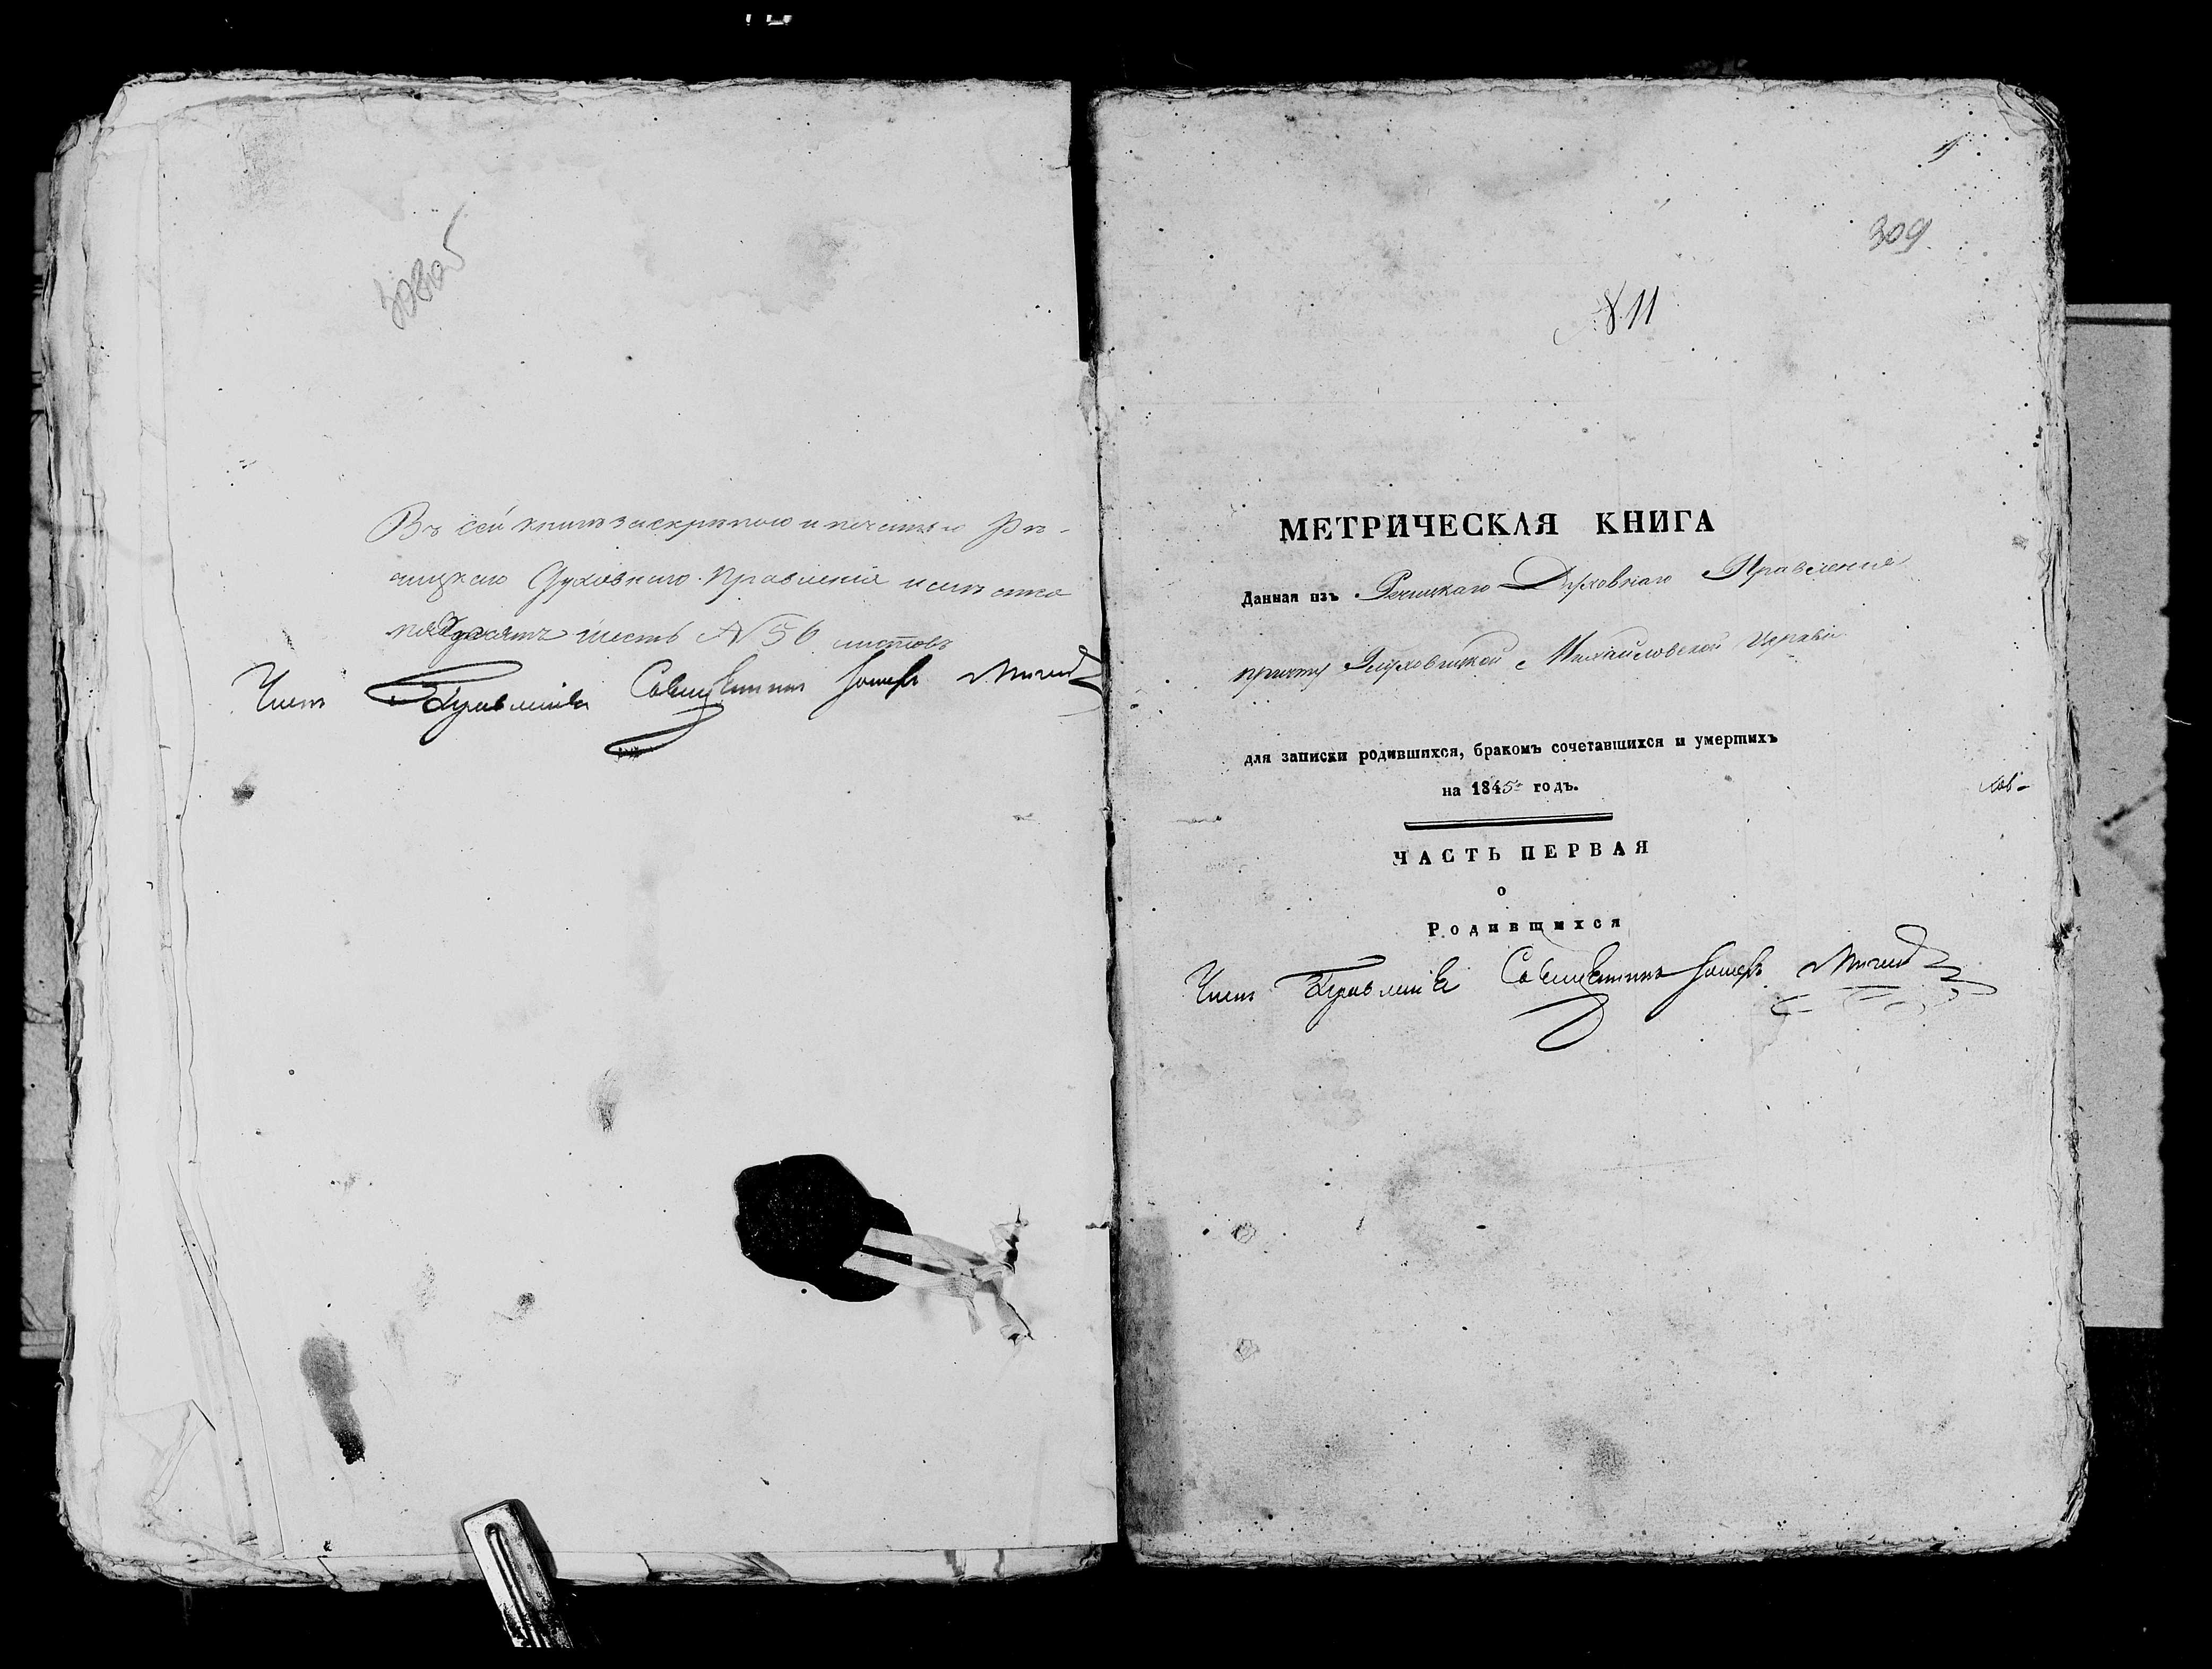 308 об
Въ сей книгѣ за скрѣпою и печатью Рѣ-
чицкаго Духовнаго Правленія
пядесятъ шесть № 56 листовъ
Членъ Правленія Священникъ
1
309
№ 11
МЕТРИЧЕСКАЯ КНИГА
Данная изъ Речицкаго Духовнаго Правления
причту Глуховицкой Михайловской Церкви
для записки родившихся, бракомъ сочетавшихся и умершихъ
на 1845 годъ.
ЧАСТЬ ПЕРВАЯ
о
Родившихся
Членъ Правленія Священникъ